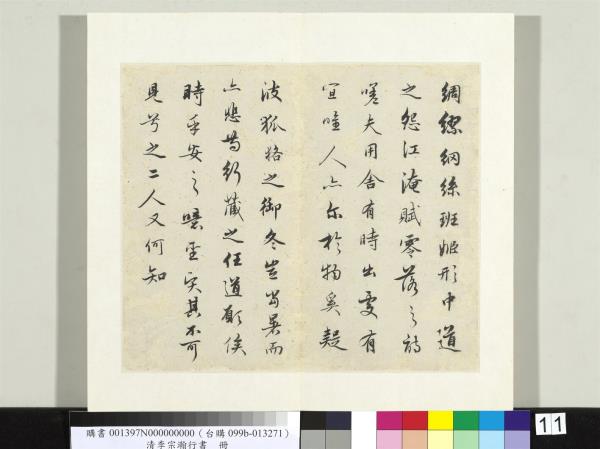 綢繆網絲班姬形中道
之怨江淹賦零落之詩
嗟夫用舍有時出處有
宜噫人亦尔於物奚疑
波狐狢之御冬豈當暑而
亦悲苟行藏之任道顧俟
時乎安之嗟聖賢其不可
見兮之二人又何知
購書001397N000000000(台購099b-013271)
清李宗瀚行書 冊
11